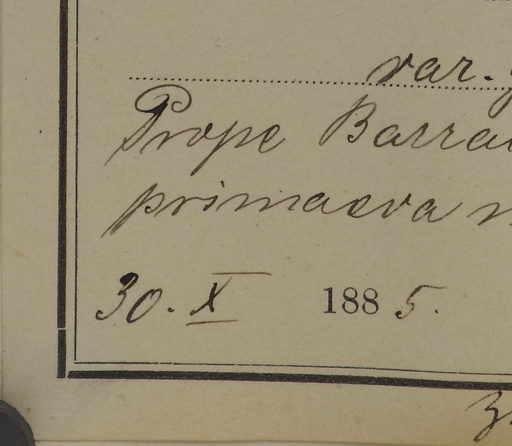 var.
Prope Barra
primaeva
30. X 1885.